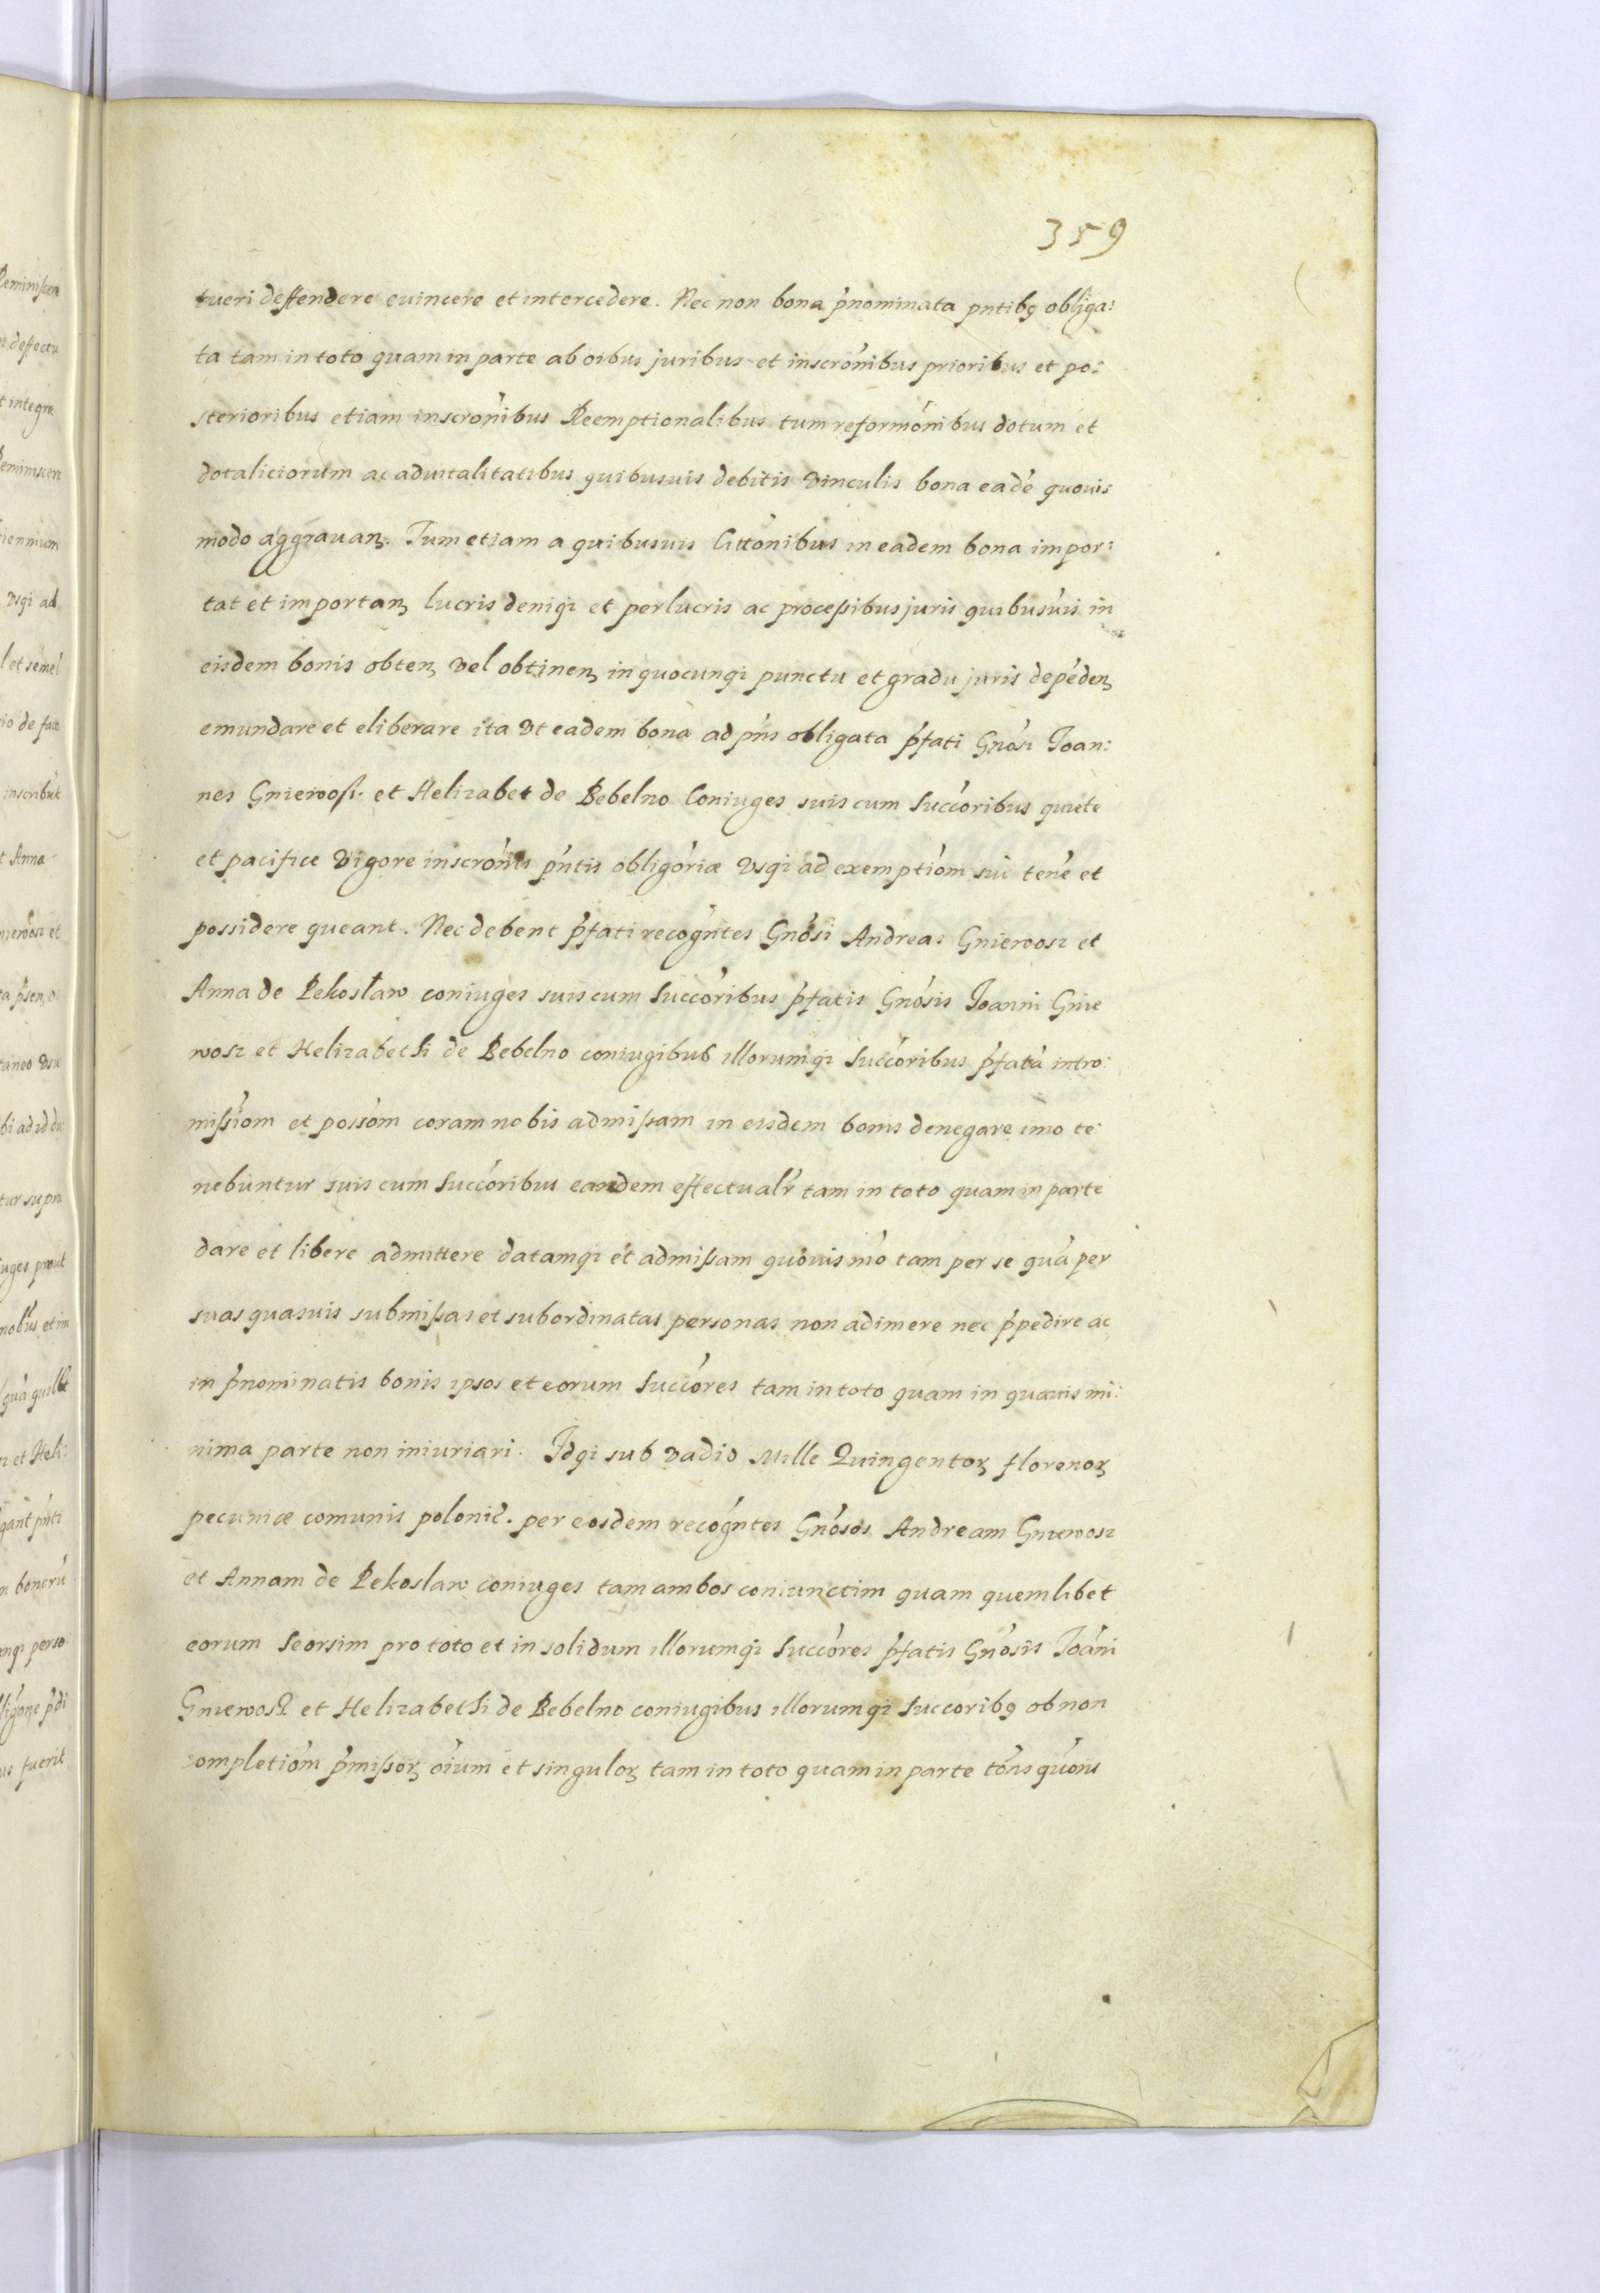 359
tueri deffendere euincere et intercedere. Nec non bona p̃nominata pntibꝫ obliga:
ta tam in toto quam in parte ab oibus juribus et inscrónibus prioribus et po:
sterioribus etiam inscrónibus Reemptionalibus tum reformónibus dotum et
dotaliciorum ac aduitalitatibus quibusuis debitis vinculis bona eadé quouis
modo aggrauanꝫ. Tum etiam a quibusuis Cittónibus in eadem bona impor:
tat et importanꝫ lucris deniqꝫ et perlucris ac processibus juris quibusuis in
eisdem bonis obtenꝫ vel obtinenꝫ in quocunqꝫ punctu et gradu juris depédenꝫ
emundare et eliberare ita vt eadem bona ad pńs obligata p̃fati Gnósi Joan:
nes Gniewosz et Helizabet de Bebelno Coniuges suis cum Succóribus quiete
et pacifice vigore inscrónis pńtis obligóriæ vsqꝫ ad exemptióm sui tené et
possidere queant. Nec debent p̃fati recogńtes Gnósi Andreas Gniewosz et
Anna de Pekosław coniuges suis cum Succóribus p̃fatis Gnósis Joanni Gnie
wosz et Helizabethi de Bebelno coniugibus illorumqꝫ Succóribus p̃fata intro:
missióm et possóm coram nobis admissam in eisdem bonis denegare imo te:
nebuntur suis cum Succóribus eandem effectualŕ tam in toto quam in parte
dare et libere admittere datamqꝫ et admissam quouis mó tam per se quá per
suas quasuis submissas et subordinatas personas non adimere nec p̃pedire ac
in p̃nominatis bonis ipsos et eorum Succóres tam in toto quam in quauis mi:
nima parte non iniuriari. Idqꝫ sub vadio Mille Quingentoꝝ florenoꝝ
pecuniæ comunis polonic̃. per eosdem recogńtes Gnósos Andream Gniewosz
et Annam de Pekoslaw coniuges tam ambos coniunctim quam quemlibet
eorum Seorsim pro toto et in solidum illorumqꝫ Succóres p̃fatis Gnósis Joáni
Gniewosz et Helizabethi de Bebelno coniugibus illorumqꝫ Succoribꝫ ob non
completióm p̃missoꝝ óium et singuloꝝ tam in toto quam in parte tóns quóuis